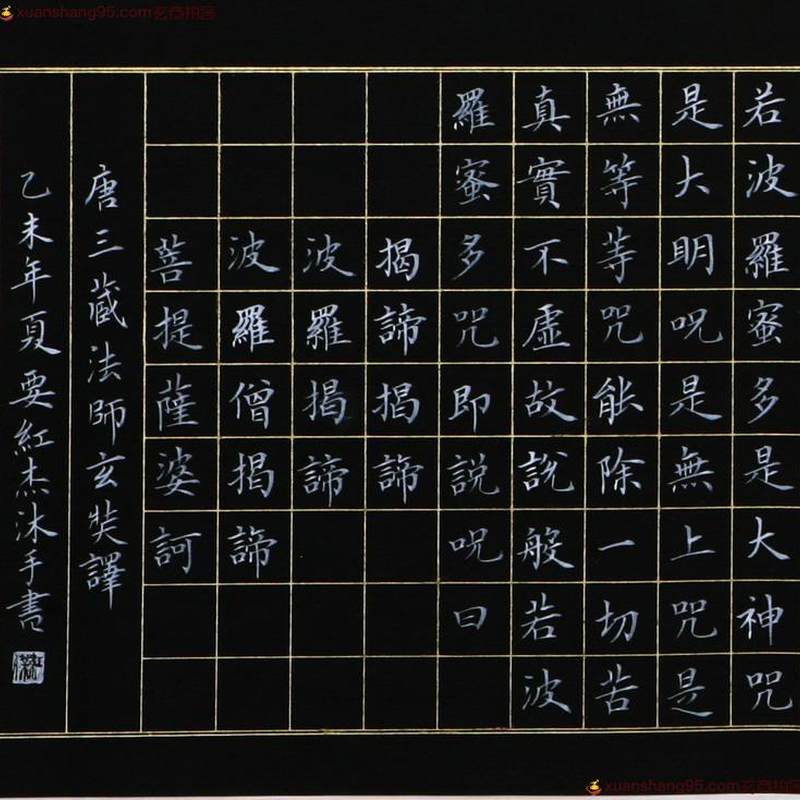 xuanshang95.com
若波羅蜜多是大神咒
是大明呪是無上咒是
無等等咒能除一切苦
真實不虛故說般若波
羅蜜多咒即說呪曰
揭諦揭諦
波羅揭諦
波羅僧揭諦
菩提薩婆訶
唐三藏法師玄奘譯
乙未年夏要紅杰沐手書
xuanshang95.com